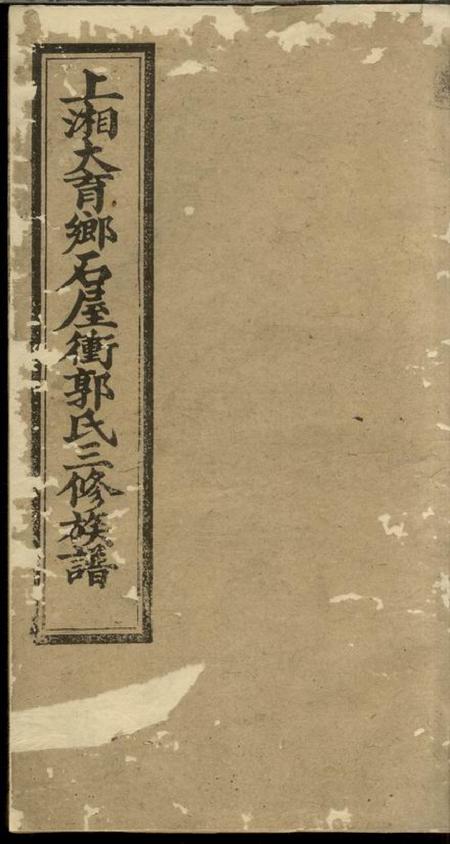 上湘大育鄉石屋衝郭氏三修族譜